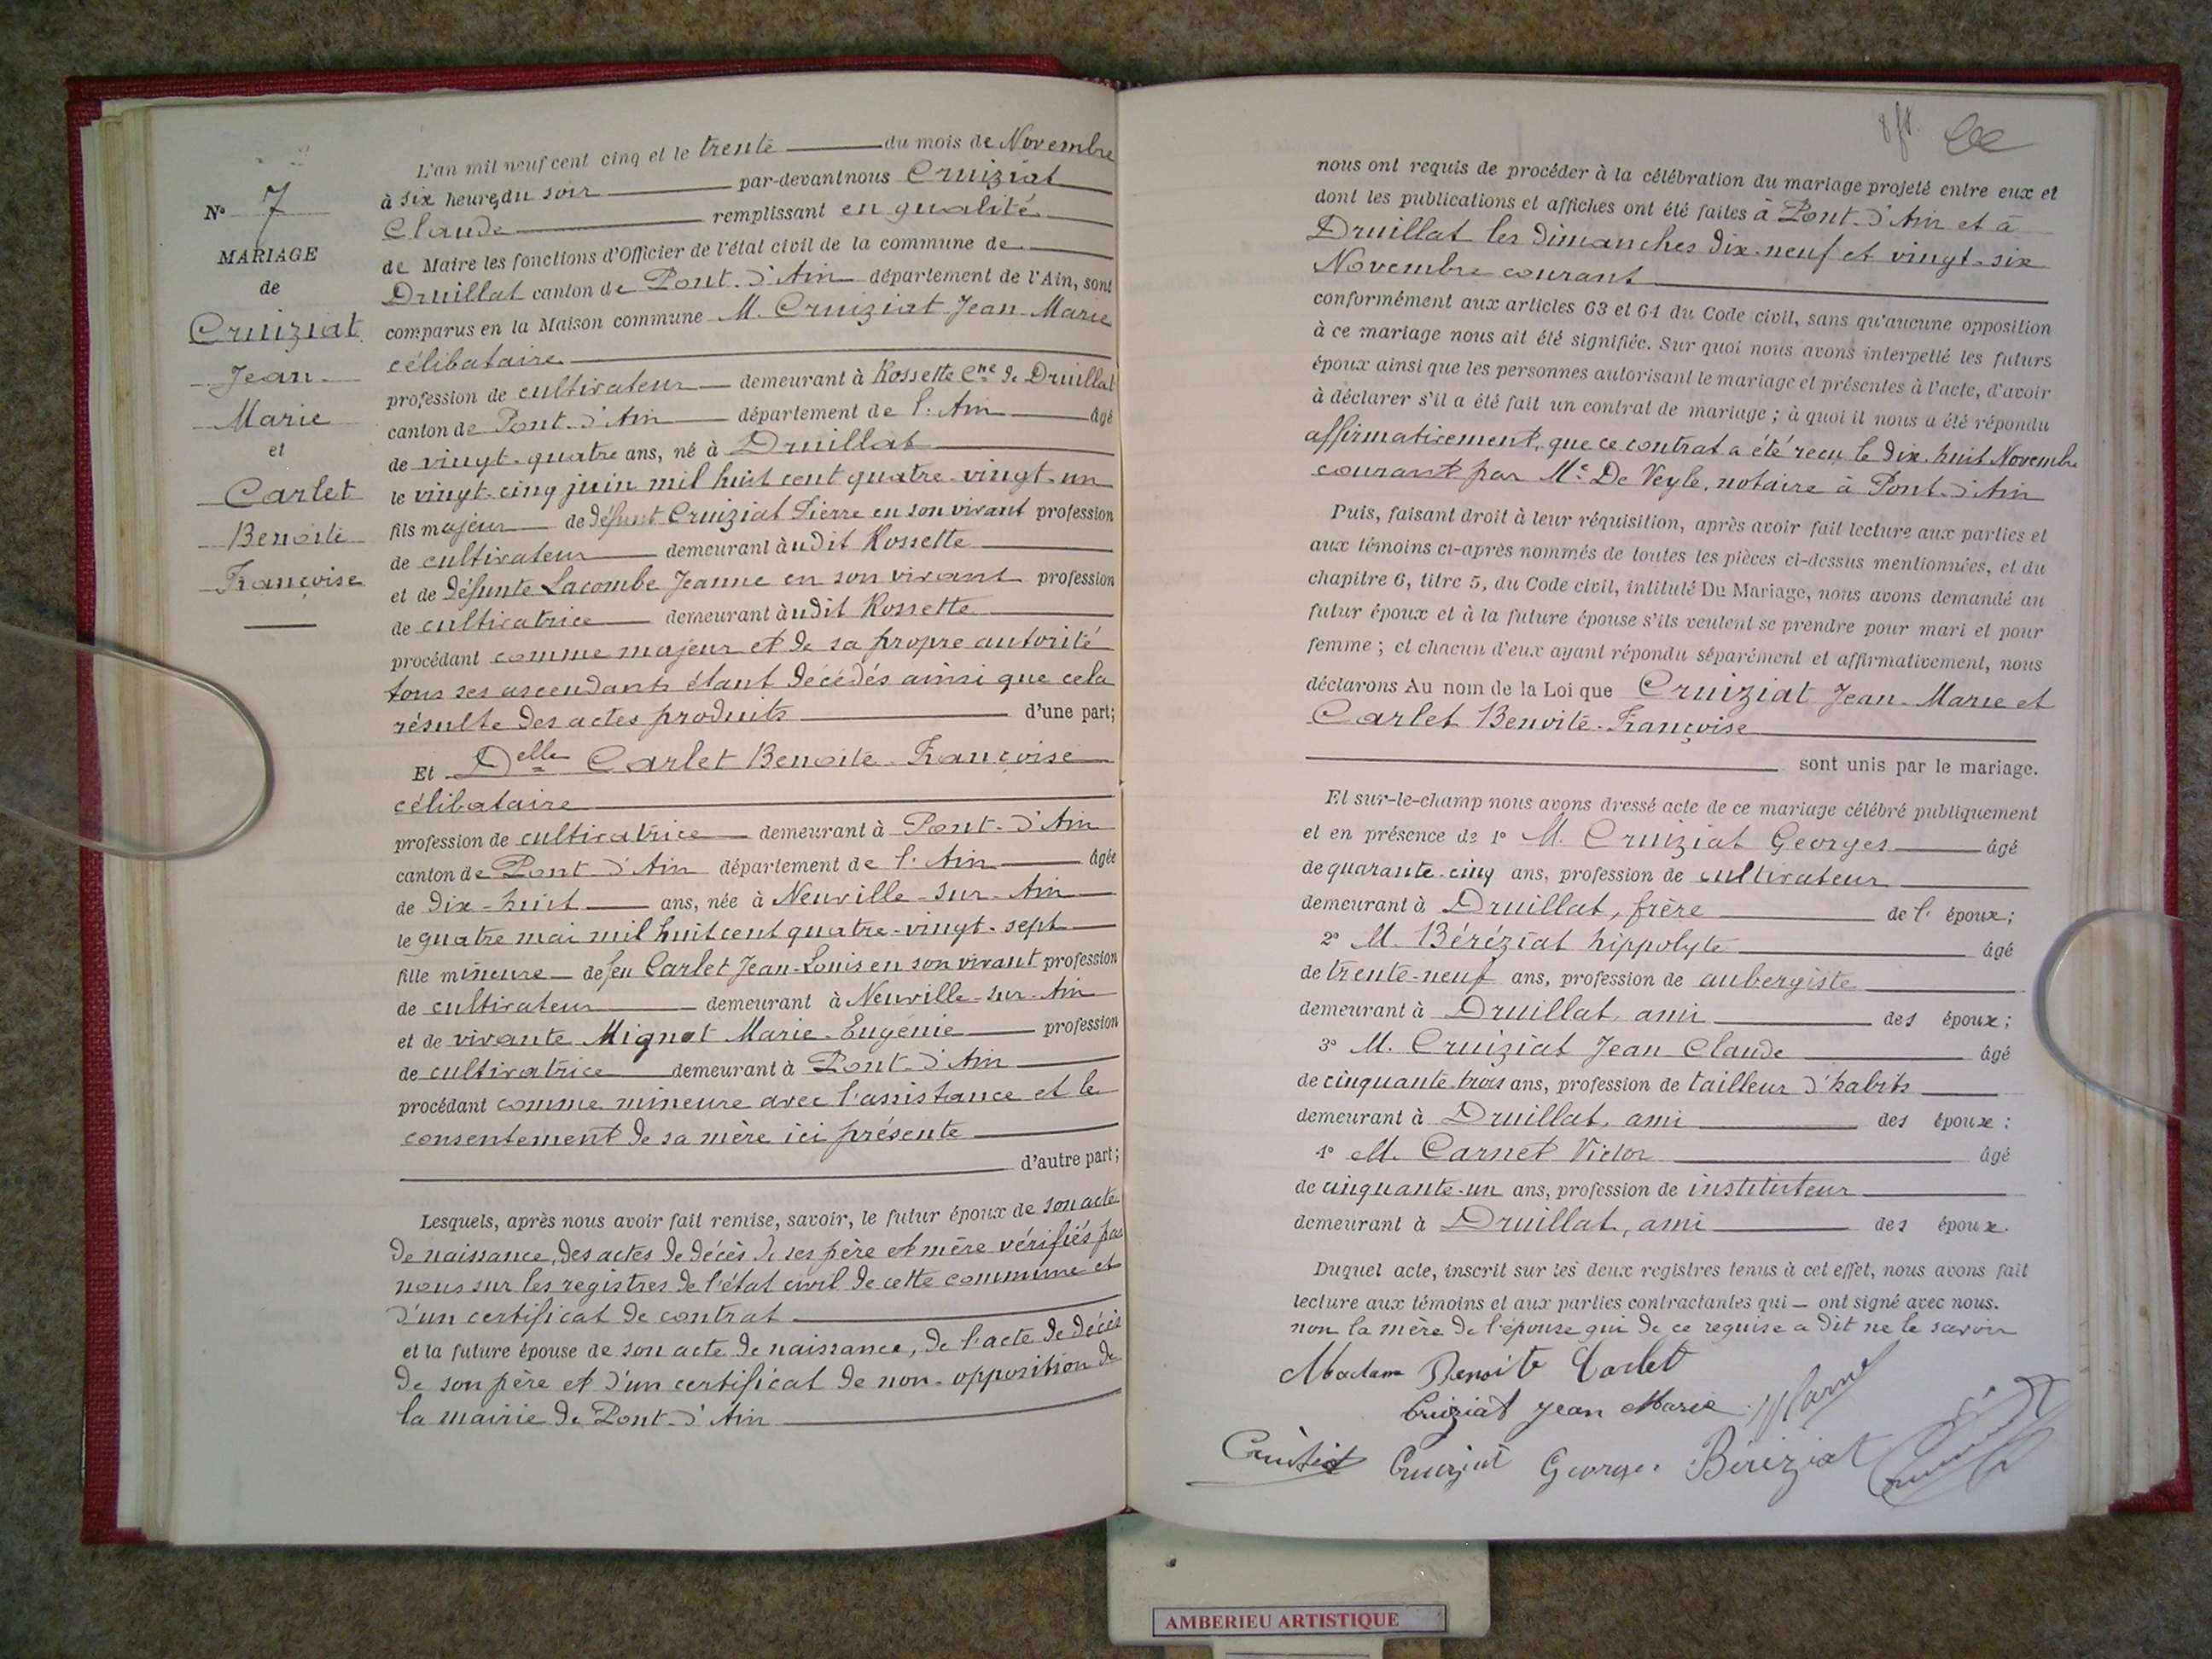 N° 7
MARIAGE
de
Cruiziat
Jean
Marie
et
Carlet
Benoite
Françoise
L'an mil neuf cent cinq et le trente du mois de Novembre
à six heures du soir par-devant nous Cruiziat
Claude remplissant en qualité
de Maire les fonctions d'Officier de l'état civil de la commune de
Druillat canton de Pont-d'Ain département de l'Ain, sont
comparus en la Maison commune M. Cruiziat Jean-Marie
célibataire
profession de cultivateur demeurant à Rossette Cne de Druillat
canton de Pont-d'Ain département de l'Ain âgé
de vingt-quatre ans, né à Druillat
le vingt-cinq juin mil huit cent quatre-vingt-un
fils majeur de défunt Cruiziat Pierre en son vivant profession
de cultivateur demeurant àudit Rossette
et de défunte Lacombe Jeanne en son vivant profession
de cultivatrice demeurant àudit Rossette
procédant comme majeur et de sa propre autorité
tous ses ascendants étant décédés ainsi que cela
résulte des actes produits d'une part;
Et Delle Carlet Benoite-Françoise
célibataire
profession de cultivatrice demeurant à Pont-d'Ain
canton de Pont-d'Ain département de l'Ain âgée
de dix-huit ans, née à Neuville-sur-Ain
le quatre mai mil huit cent quatre-vingt-sept
fille mineure de feu Carlet Jean-Louis en son vivant profession
de cultivateur demeurant à Neuville-sur-Ain
et de vivante Mignot Marie-Eugénie profession
de cultivatrice demeurant à Pont-d'Ain
procédant comme mineure avec l'assistance et le
consentement de sa mère ici présente
d'autre part;
Lesquels, après nous avoir fait remise, savoir, le futur époux de son acte
de naissance, des actes de décès de ses père et mère vérifiés par
nous sur les registres de l'état civil de cette commune et
d'un certificat de contrat
et la future épouse de son acte de naissance, de l'acte de décès
de son père et d'un certificat de non-opposition de
la mairie de Pont-d'Ain
nous ont requis de procéder à la célébration du mariage projeté entre eux et
dont les publications et affiches ont été faites à Pont-d'Ain et à
Druillat les dimanches dix-neuf et vingt-six
Novembre courant
conformément aux articles 63 et 64 du Code civil, sans qu'aucune opposition
à ce mariage nous ait été signifiée. Sur quoi nous avons interpellé les futurs
époux ainsi que les personnes autorisant le mariage et présentes à l'acte, d'avoir
à déclarer s'il a été fait un contrat de mariage ; à quoi il nous a été répondu
affirmativement, que ce contrat a été reçu le dix-huit Novembre
courant par Me De Veyle, notaire à Pont-d'Ain
Puis, faisant droit à leur réquisition, après avoir fait lecture aux parties et
aux témoins ci-après nommés de toutes les pièces ci-dessus mentionnées, et du
chapitre 6, titre 5, du Code civil, intitulé Du Mariage, nous avons demandé au
futur époux et à la future épouse s'ils veulent se prendre pour mari et pour
femme ; et chacun d'eux ayant répondu séparément et affirmativement, nous
déclarons Au nom de la Loi que Cruiziat Jean-Marie et
Carlet Benoite-Françoise
sont unis par le mariage.
Et sur-le-champ nous avons dressé acte de ce mariage célébré publiquement
et en présence de 1° M. Cruiziat Georges âgé
de quarante-cinq ans, profession de cultivateur
demeurant à Druillat, frère de l'époux;
2° M. Béréziat hippolyte âgé
de trente-neuf ans, profession de aubergiste
demeurant à Druillat, ami des époux;
3° M. Cruiziat Jean Claude âgé
de cinquante-trois ans, profession de tailleur d'habits
demeurant à Druillat, ami des époux;
4° M. Carnet Victor âgé
de cinquante-un ans, profession de instituteur
demeurant à Druillat, ami des époux.
Duquel acte, inscrit sur les deux registres tenus à cet effet, nous avons fait
lecture aux témoins et aux parties contractantes qui ont signé avec nous.
non la mère de l'épouse qui de ce requise a dit ne le savoir
Madame Benoite Carlet
Cruiziat Jean Marie
Cruiziat Georges Béréziat
AMBERIEU ARTISTIQUE